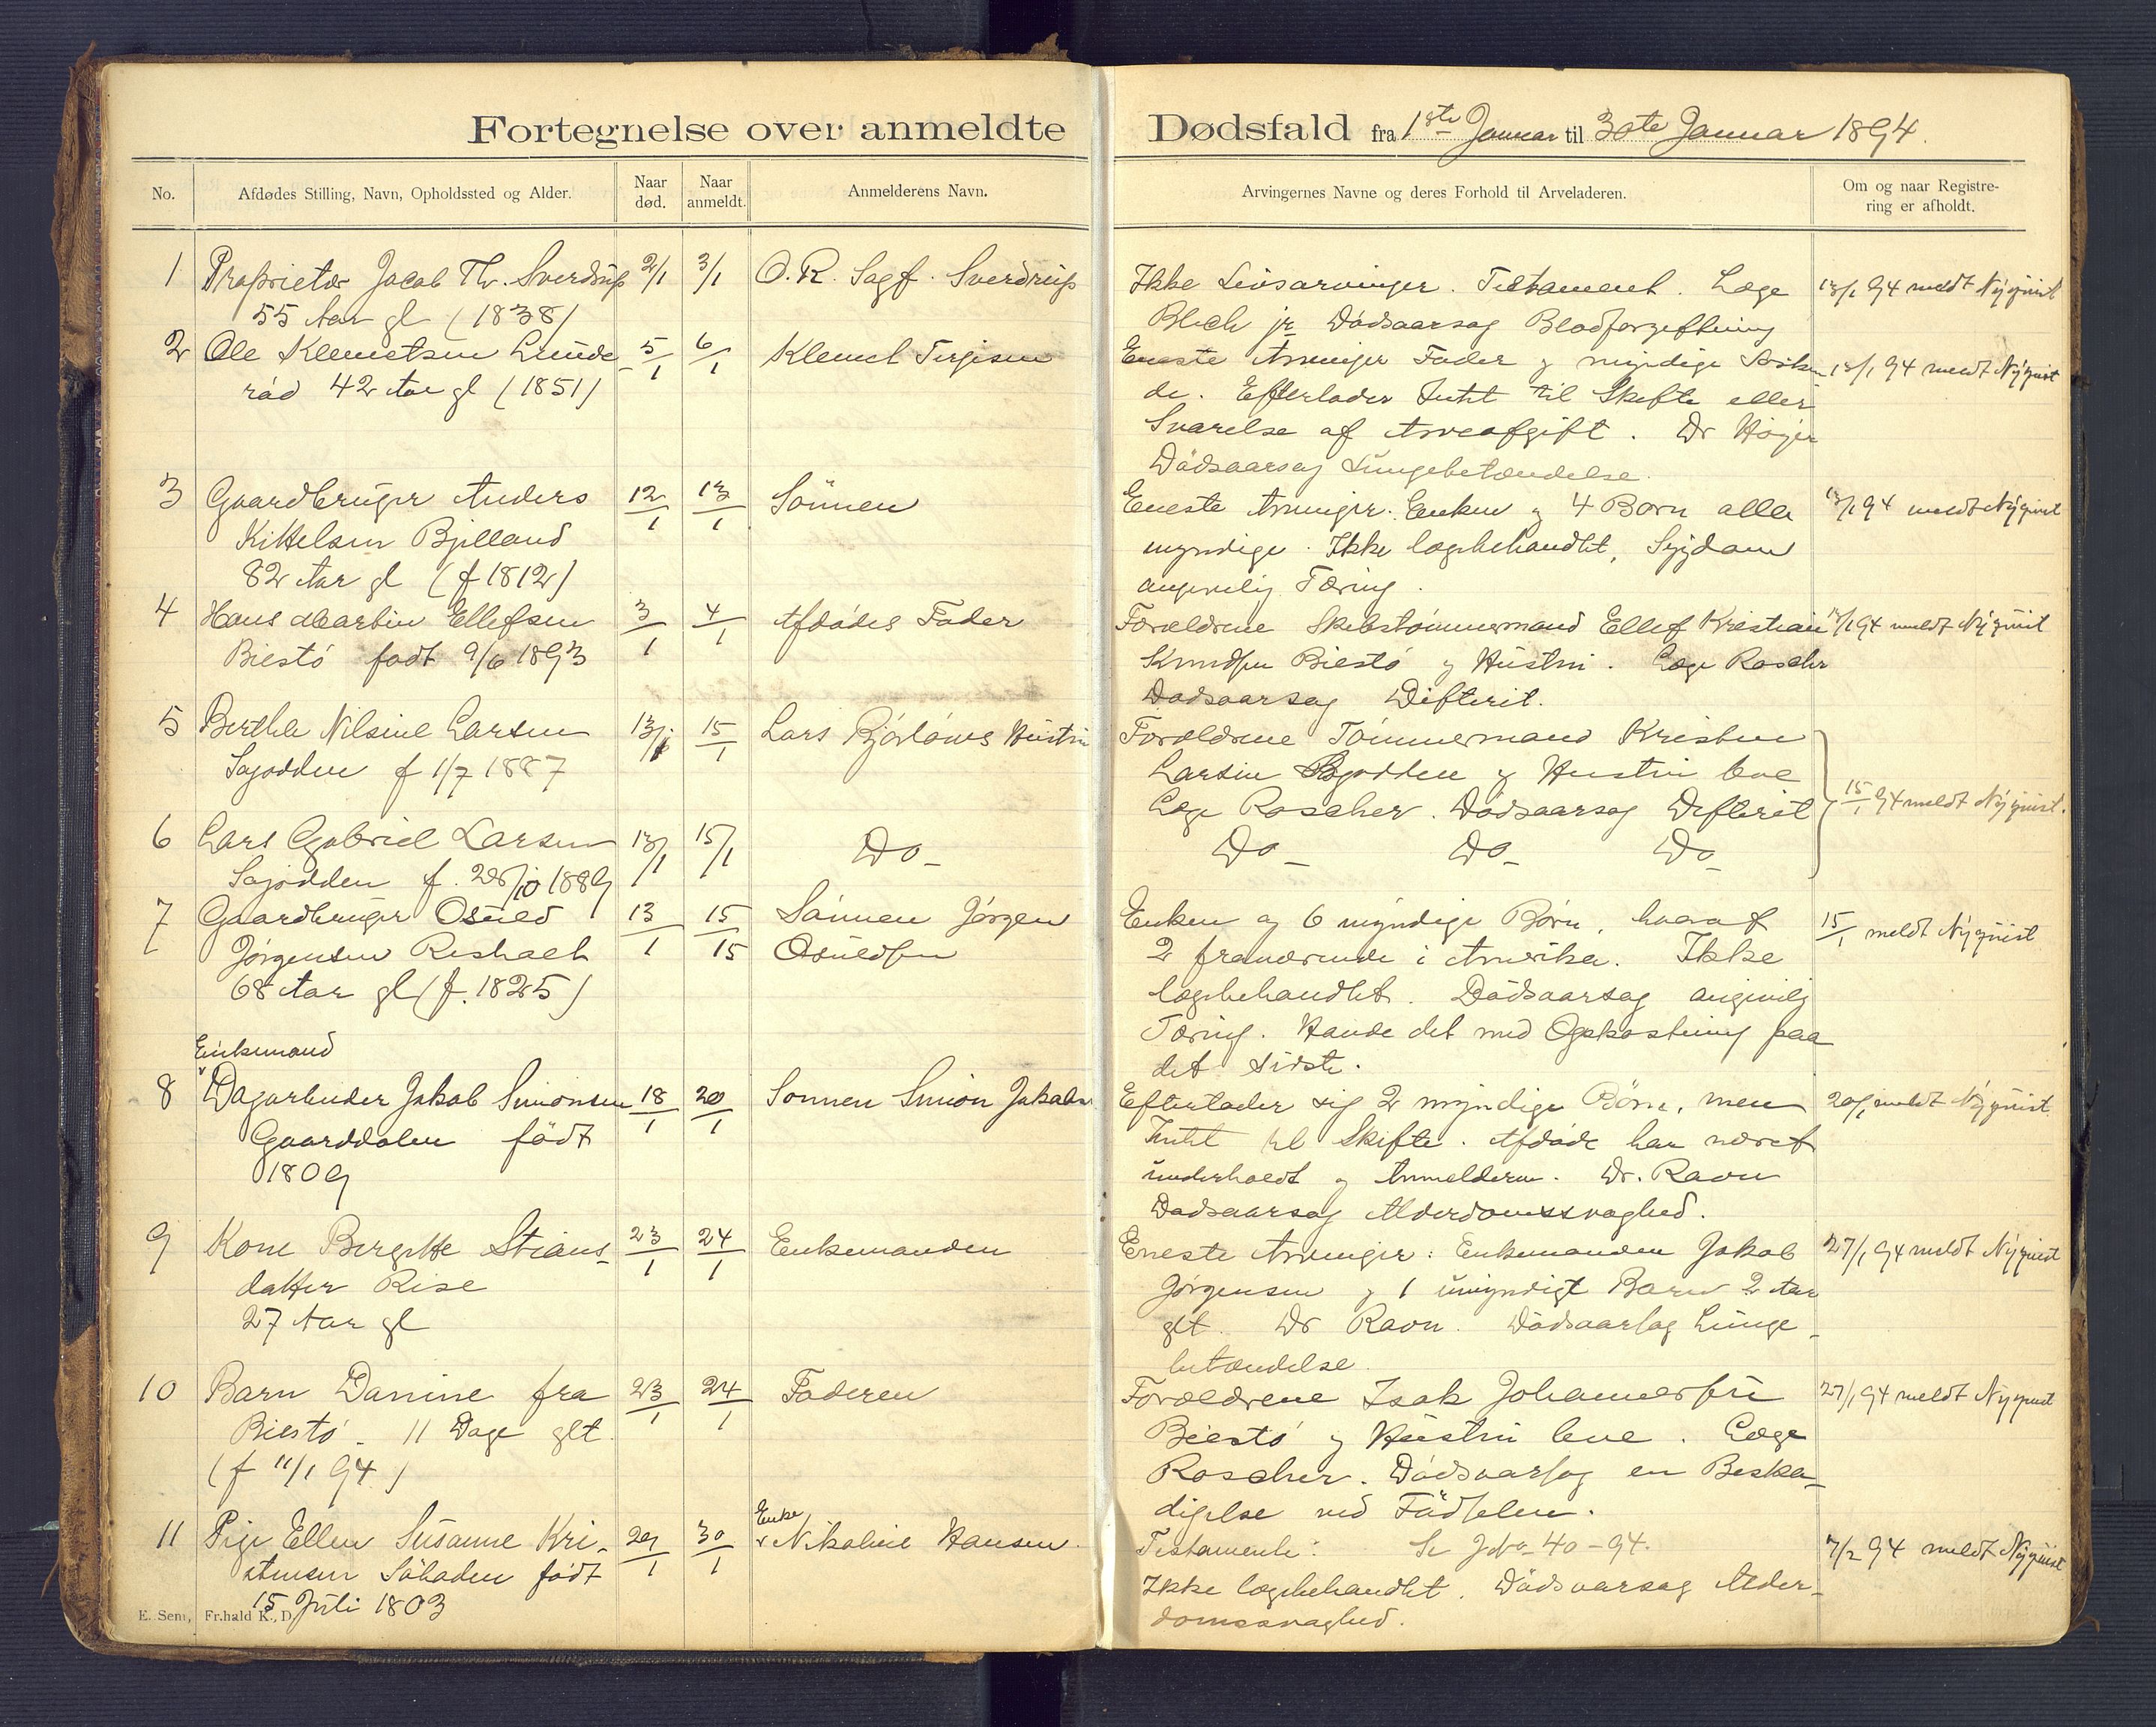 Fortegnelse over anmeldte Dødsfald fra 1ste Januar til 30te Januar 1894.
No. Afdødes Stilling, Navn, Opholdssted og Alder. Naar død. Naar anmeldt. Anmelderens Navn. Arvingernes Navne og deres Forhold til Arveladeren. Om og naar Registrering er afholdt.
1 Proprietær Jacob Th. Sverdrup 2/1 3/1 O.R. Sagf. Sverdrup
55 Aar gl (1838)
2 Ole Klemetsen Lunde 5/1 6/1 Klemet Terjesen
rød 42 Aar gl (1851)
3 Gaardbruger Anders 12/1 13/1 Sönnen
Kittelsen Bjelland
82 Aar gl (f 1812)
4 Hans Martin Ellefsen 3/1 4/1 Afdödes Fader
Biestö födt 9/6 1893
5 Berthe Nilsine Larsen 13/1 15/1 Lars Hustru
Sagodden f 1/7 1887
6 Lars Gabriel Larsen 13/1 15/1 Do
Sagodden f. 28/10 1889
7 Gaardbruger Osuld 13/1 15/15 Sönnen Jörgen
Jörgensen Osuldsen
68 Aar gl (f. 1825)
Enkemand
8 Dagarbeider Jakob Simonsen 18/1 20/1 Sönnen Simon Jakobs
Gaarddalen födt
1809
9 Kone Birgitte Stians- 23/1 24/1 Enkemanden
datter Rise
27 Aar gl
10 Barn Danine fra 23/1 24/1 Faderen
Biestö. 11 Dage glt
(f 11/1 94)
Enke
11 Pige Ellen Susanne Kri- 29/1 30/1 Nikoline Hansen
stensen födt
15 Juli 1803
E. Sem, Fr.hald K., D
Ikke Livsarvinger. Testament. Læge 13/1 94 meldt Nyquist
Blich jr Dödsaarsag Blodforgiftning
Eneste Arvinger Fader og myndige Södsken- 13/1 94 meldt Nyquist
de. Efterlader Intet til Skifte eller
Svarelse af Arveafgift. Dr Höyer
Dödsaarsag Lungebetændelse.
Eneste Arvinger: Enken og 4 Börn alle 13/1 94 meldt Nyquist
myndige. Ikke lægebehandlet, Sygdom
angivelig Tæring.
Forældrene Skibstömmermand Ellef Kristian 13/1 94 meldt Nyquist
Knudsen Biestö og Hustru. Læge Roscher
Dödsaarsag Difterit.
Forældrene Tömmermand Kristen
Larsen Sagodden og Hustru leve
Læge Roscher. Dödsaarsag Difterit 15/1 94 meldt Nyquist.
Do Do Do
Enken og 6 myndige Börn, hvoraf 15/1 meldt Nyquist
2 fraværende i Amerika. Ikke
lægebehandlet. Dödsaarsag angivelig
Tæring. Havde det med Opkastning paa
det sidste.
Efterlader sig 2 myndige Börn, men 20/1 meldt Nyquist
Intet til Skifte. Afdöde har været
underholdt af Anmelderen. Dr. Ravn
Dödsaarsag Alderdomssvaghed.
Eneste Arvinger: Enkemanden Jakob 27/1 94 meldt Nyquist
Jörgensen og 1 umyndigt Barn 2 Aar
glt. Dr Ravn. Dödsaarsag Lunge-
betændelse.
Forældrene Isak Johannessen 27/1 94 meldt Nyquist
Biestö og Hustru leve. Læge
Roscher. Dödsaarsag en Beska-
digelse ved Födselen.
Testamente: Se J No 40-94. 7/2 94 meldt Nyquist
Ikke lægebehandlet. Dödsaarsag Alder-
domssvaghed.